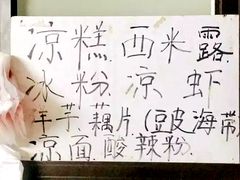 凉糕 西米露
冰粉 凉虾
羊芋.藕片.(豆皮海带
凉面 酸辣粉